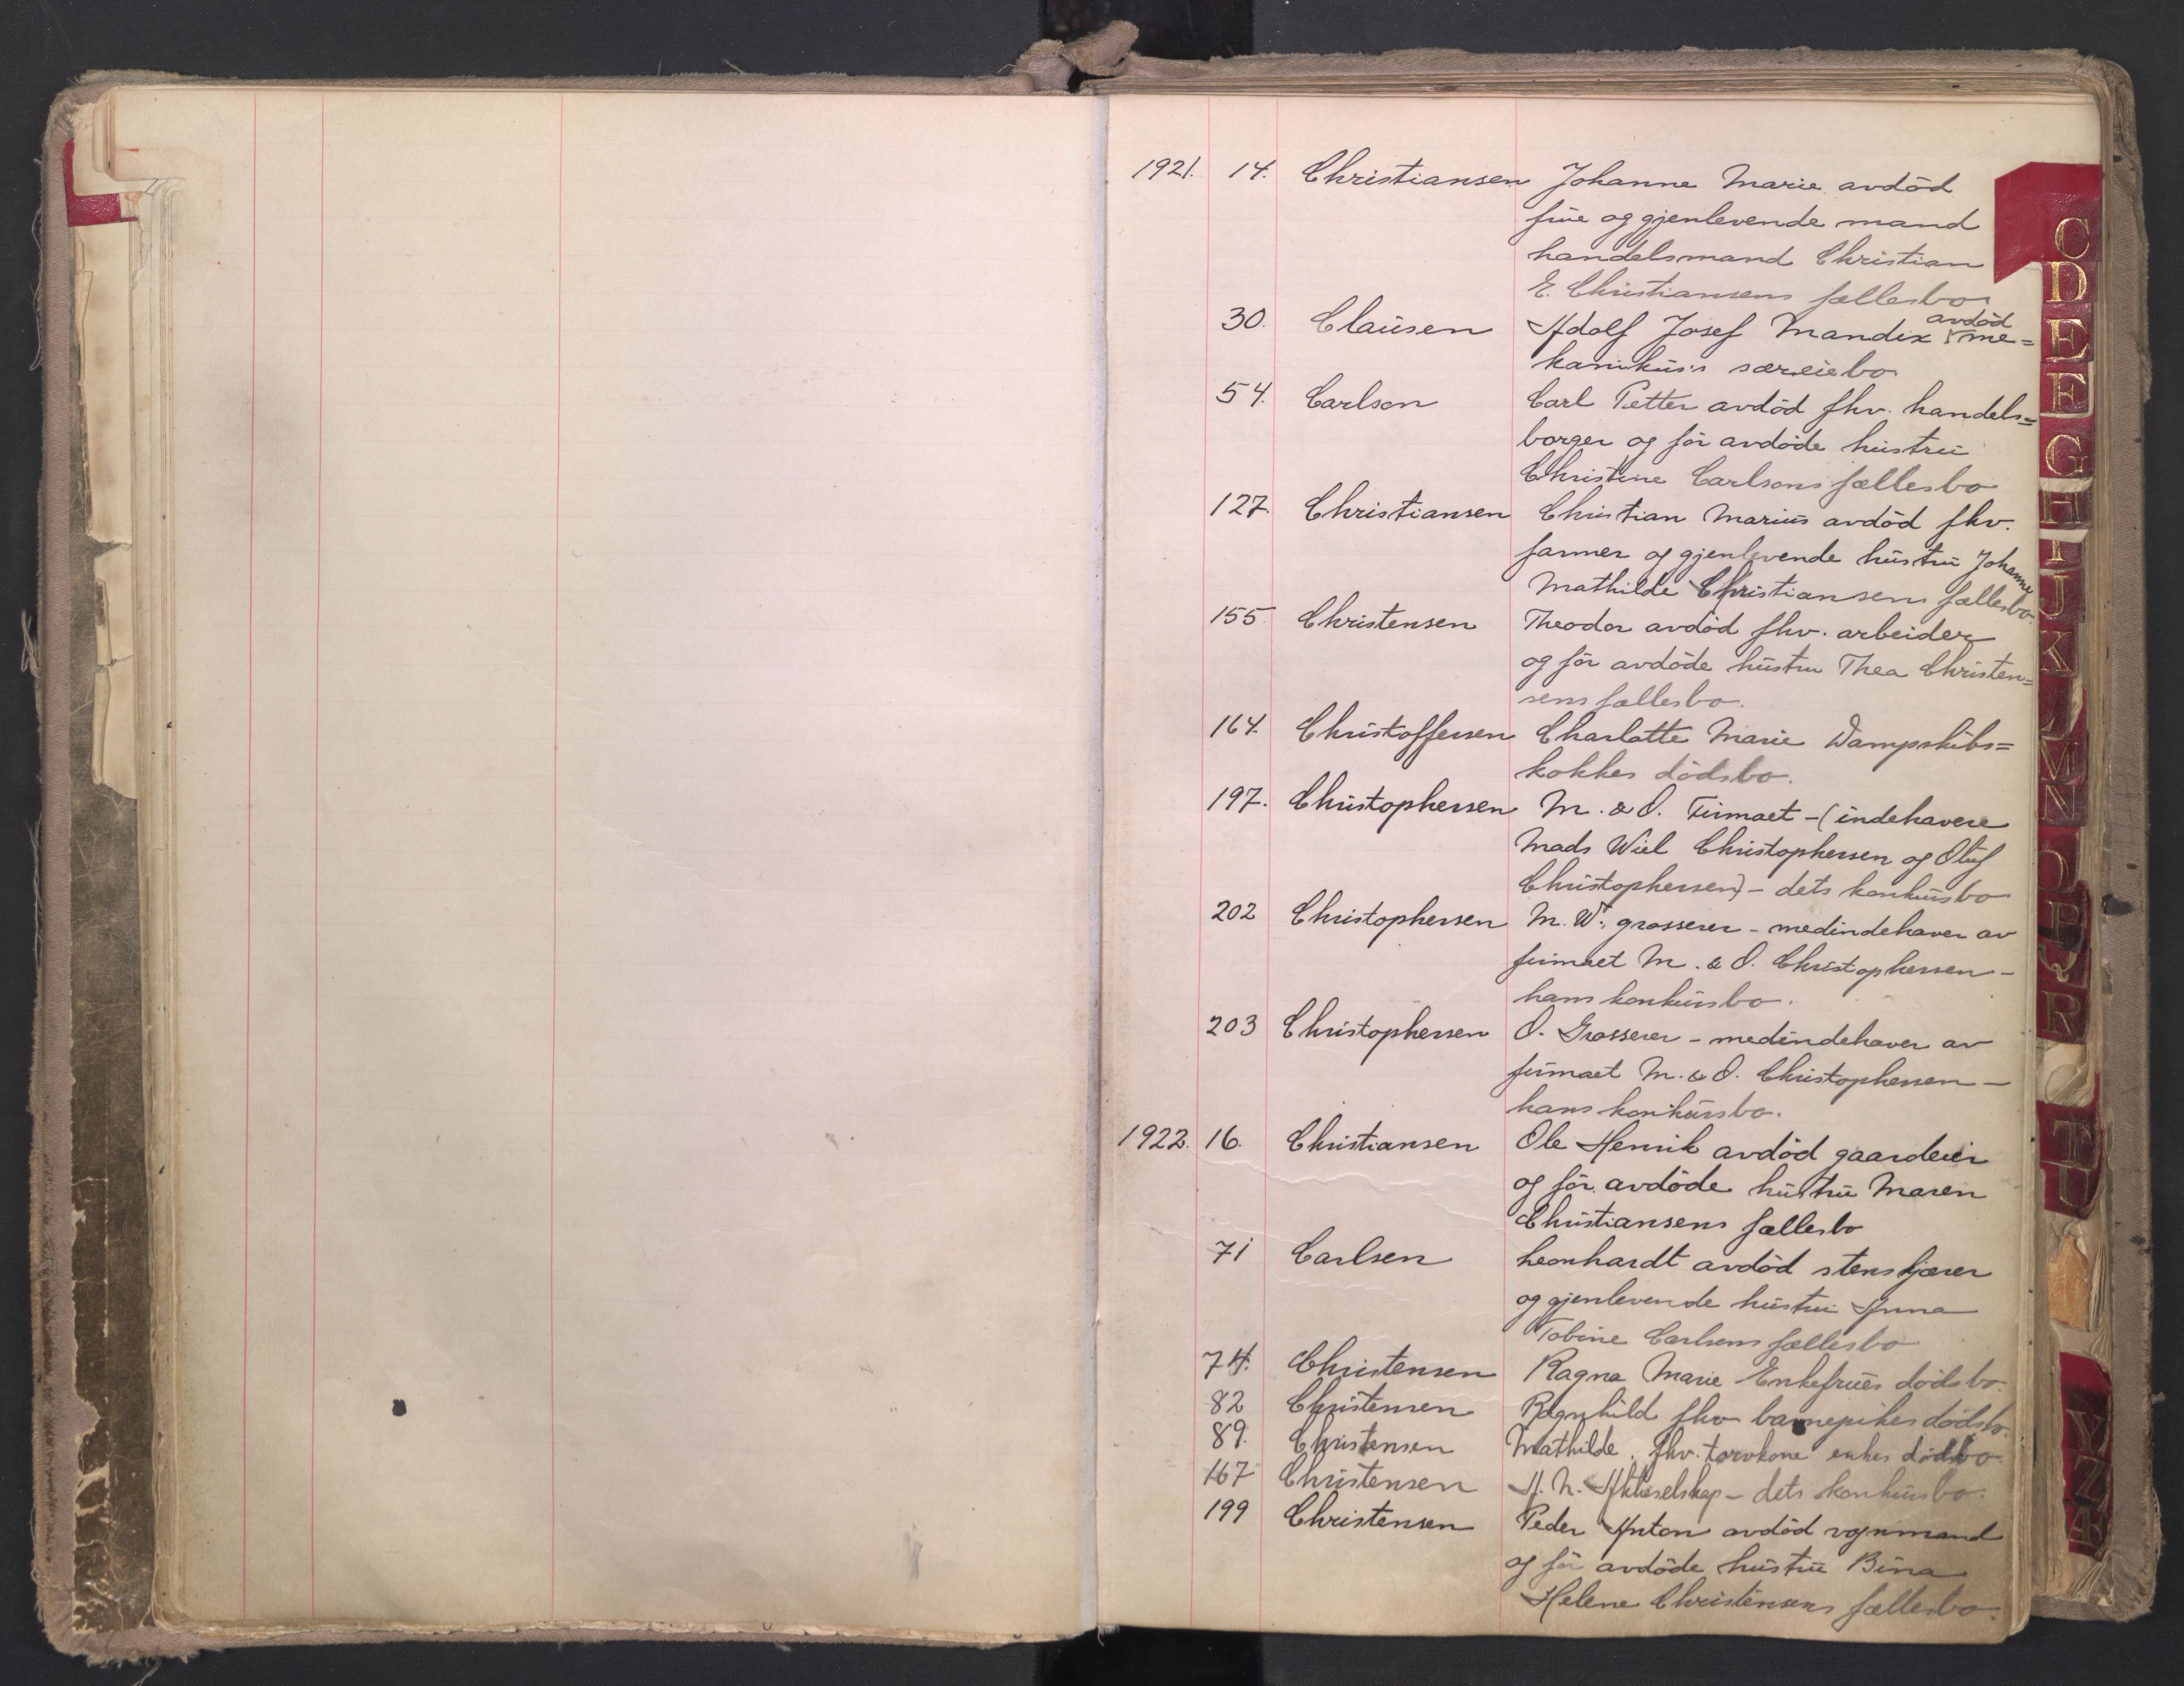 1921. 14. Christiansen Johanne Marie avdød
frue og gjenlevende mand
handelsmand Christian
E. Christiansens fællesbo
30. Clausen Adolf Josef Mandix avdød me=
kanikus's særeiebo
54. Carlson Carl Petter avdød fhv. handels=
borger og før avdøde hustru
Christine Carlsons fællesbo
127. Christiansen Christian Marius avdød fhv.
farmer og gjenlevende hustru Johanne
Mathilde Christiansens fællesbo.
155 Christensen Theodor avdød fhv. arbeider
og før avdøde hustru Thea Christen=
sens fællesbo.
164. Christoffersen Charlotte Marie Dampskibs=
kokkes dødsbo.
197. Christophersen M. & O. Firmaet - (indehavere
Mads Wiel Christophersen og Oluf
Christophersen) - dets konkursbo
202 Christophersen M. W., grosserer - medindehaver av
firmaet M. & O. Christophersen -
hans konkursbo.
203 Christophersen O. Grosserer - medindehaver av
firmaet M. & O. Christophersen -
hans konkursbo.
1922. 16. Christiansen Ole Henrik avdød gaardeier
og før avdøde hustru Maren
Christiansens fællesbo
71 Carlsen Leonhardt avdød stenskjærer
og gjenlevende hustru Anna
Tobine Carlsens fællesbo
74. Christensen Ragna Marie Enkefrues dødsbo.
82 Christensen Ragnhild fhv barnepikes dødsbo.
89. Christensen Mathilde, fhv. torvkone enkes dødsbo
167 Christensen A. N. Aktieselskap - dets konkursbo.
199 Christensen Peder Anton avdød vognmand
og før avdøde hustru Bina
Helene Christensens fællesbo.
C
D
E
F
G
H
I
J
K
M
N
O
P
Q
R
T
U
V
Z
Æ